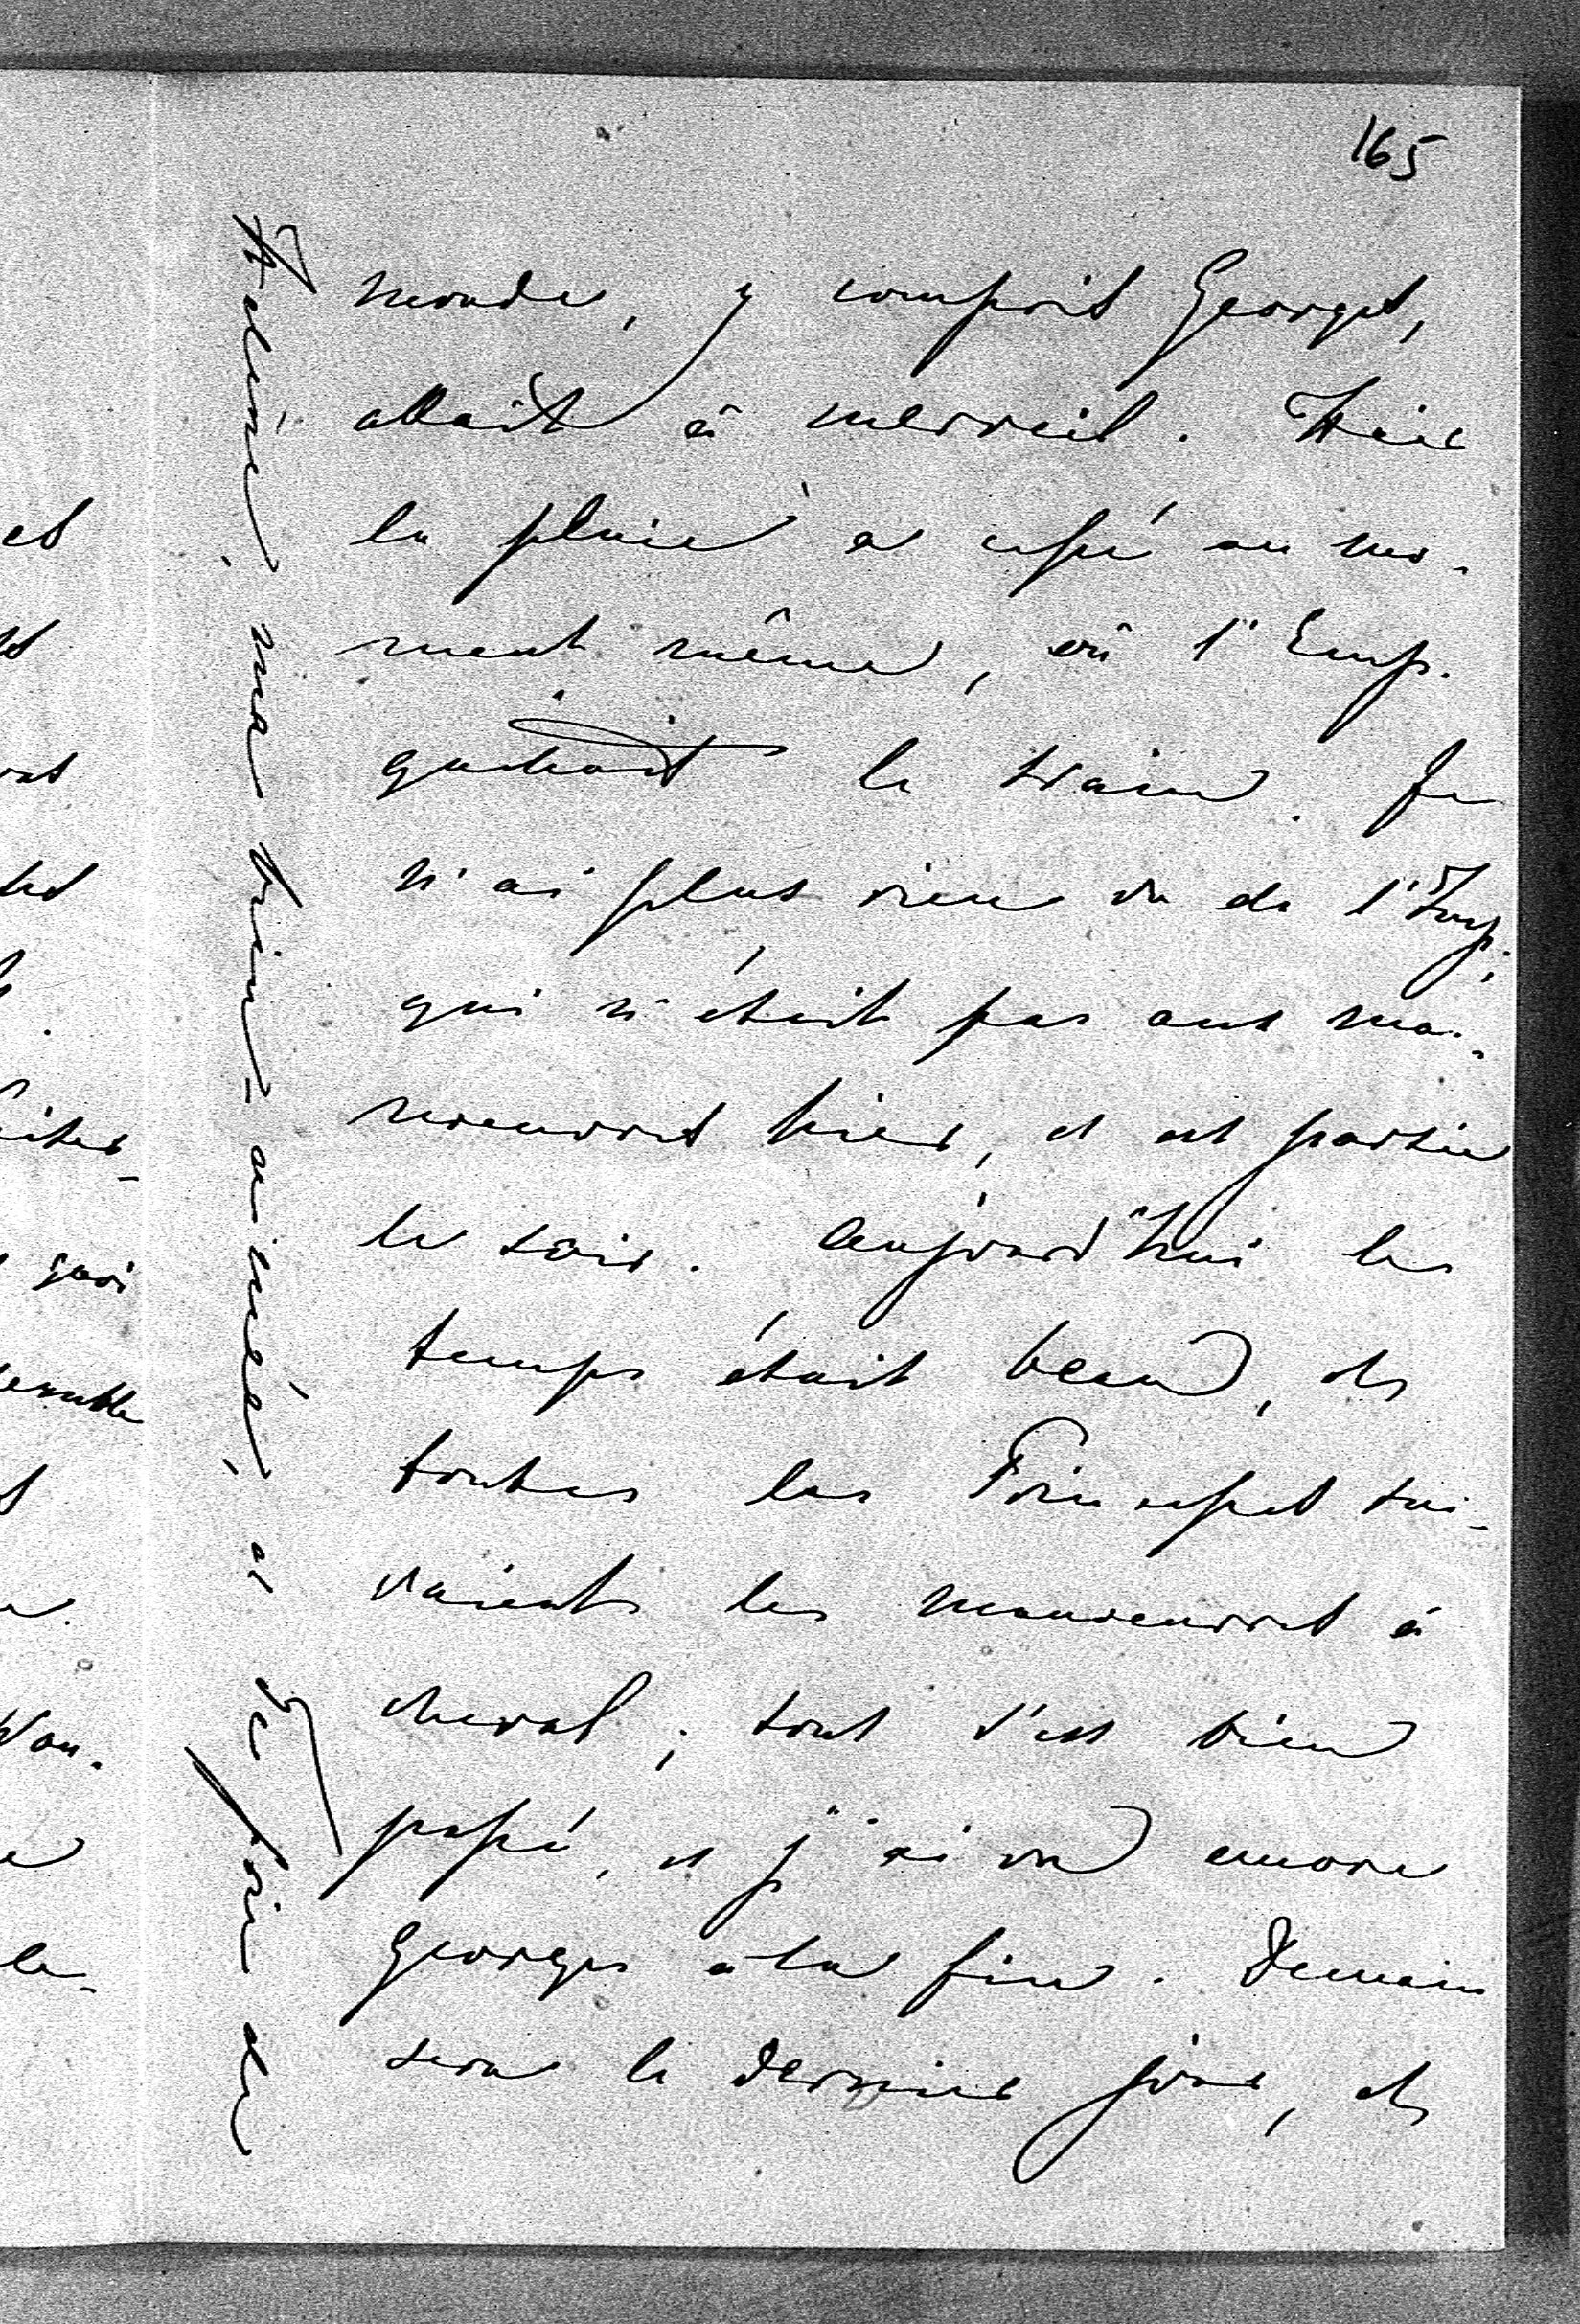 165
monde, y compris Georges,
allait à merveil. Hier
la pluie a cessé au mo-
ment même, où l'Emp.
quittait le train. Je
n'ai plus rien vu de l'Imp.,
qui n'était pas aux ma-
noeuvres hier, et est partie
le soir. Aujourd'hui le
temps était beau, et
toutes les Princesses sui-
vaient les manoeuvres à
cheval; tout s'est bien
passé, et j'ai vu encore
Georges à la fin. Demain
sera le dernier jour, et
Hélène, ma bien-aimée, a
de
et
quoi